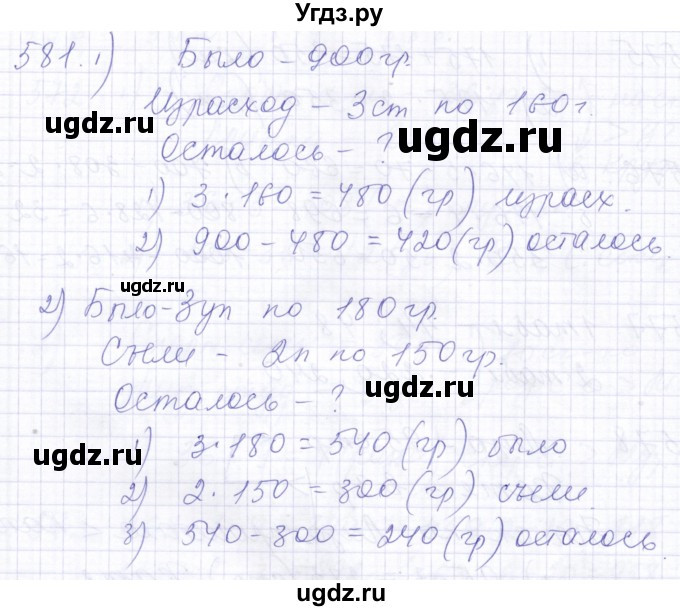 Угдз.ру
581. 1) Было – 900гр.
Израсход – 3ст по 160г.
ugdz.ru
ugdz.ru
Осталось – ?
1) 3 · 160 = 480 (гр) израсх.
2) 900 – 480 = 420 (гр) осталось.
ugdz.ru
ugdz.ru
2) Было – 3уп по 180гр.
Съели – 2п по 150гр.
ugdz.ru
Осталось – ?
1) 3 · 180 = 540 (гр) было
ugdz.ru
2) 2 · 150 = 300 (гр) съели.
ugdz.ru
3) 540 – 300 = 240 (гр) осталось
ugdz.ru